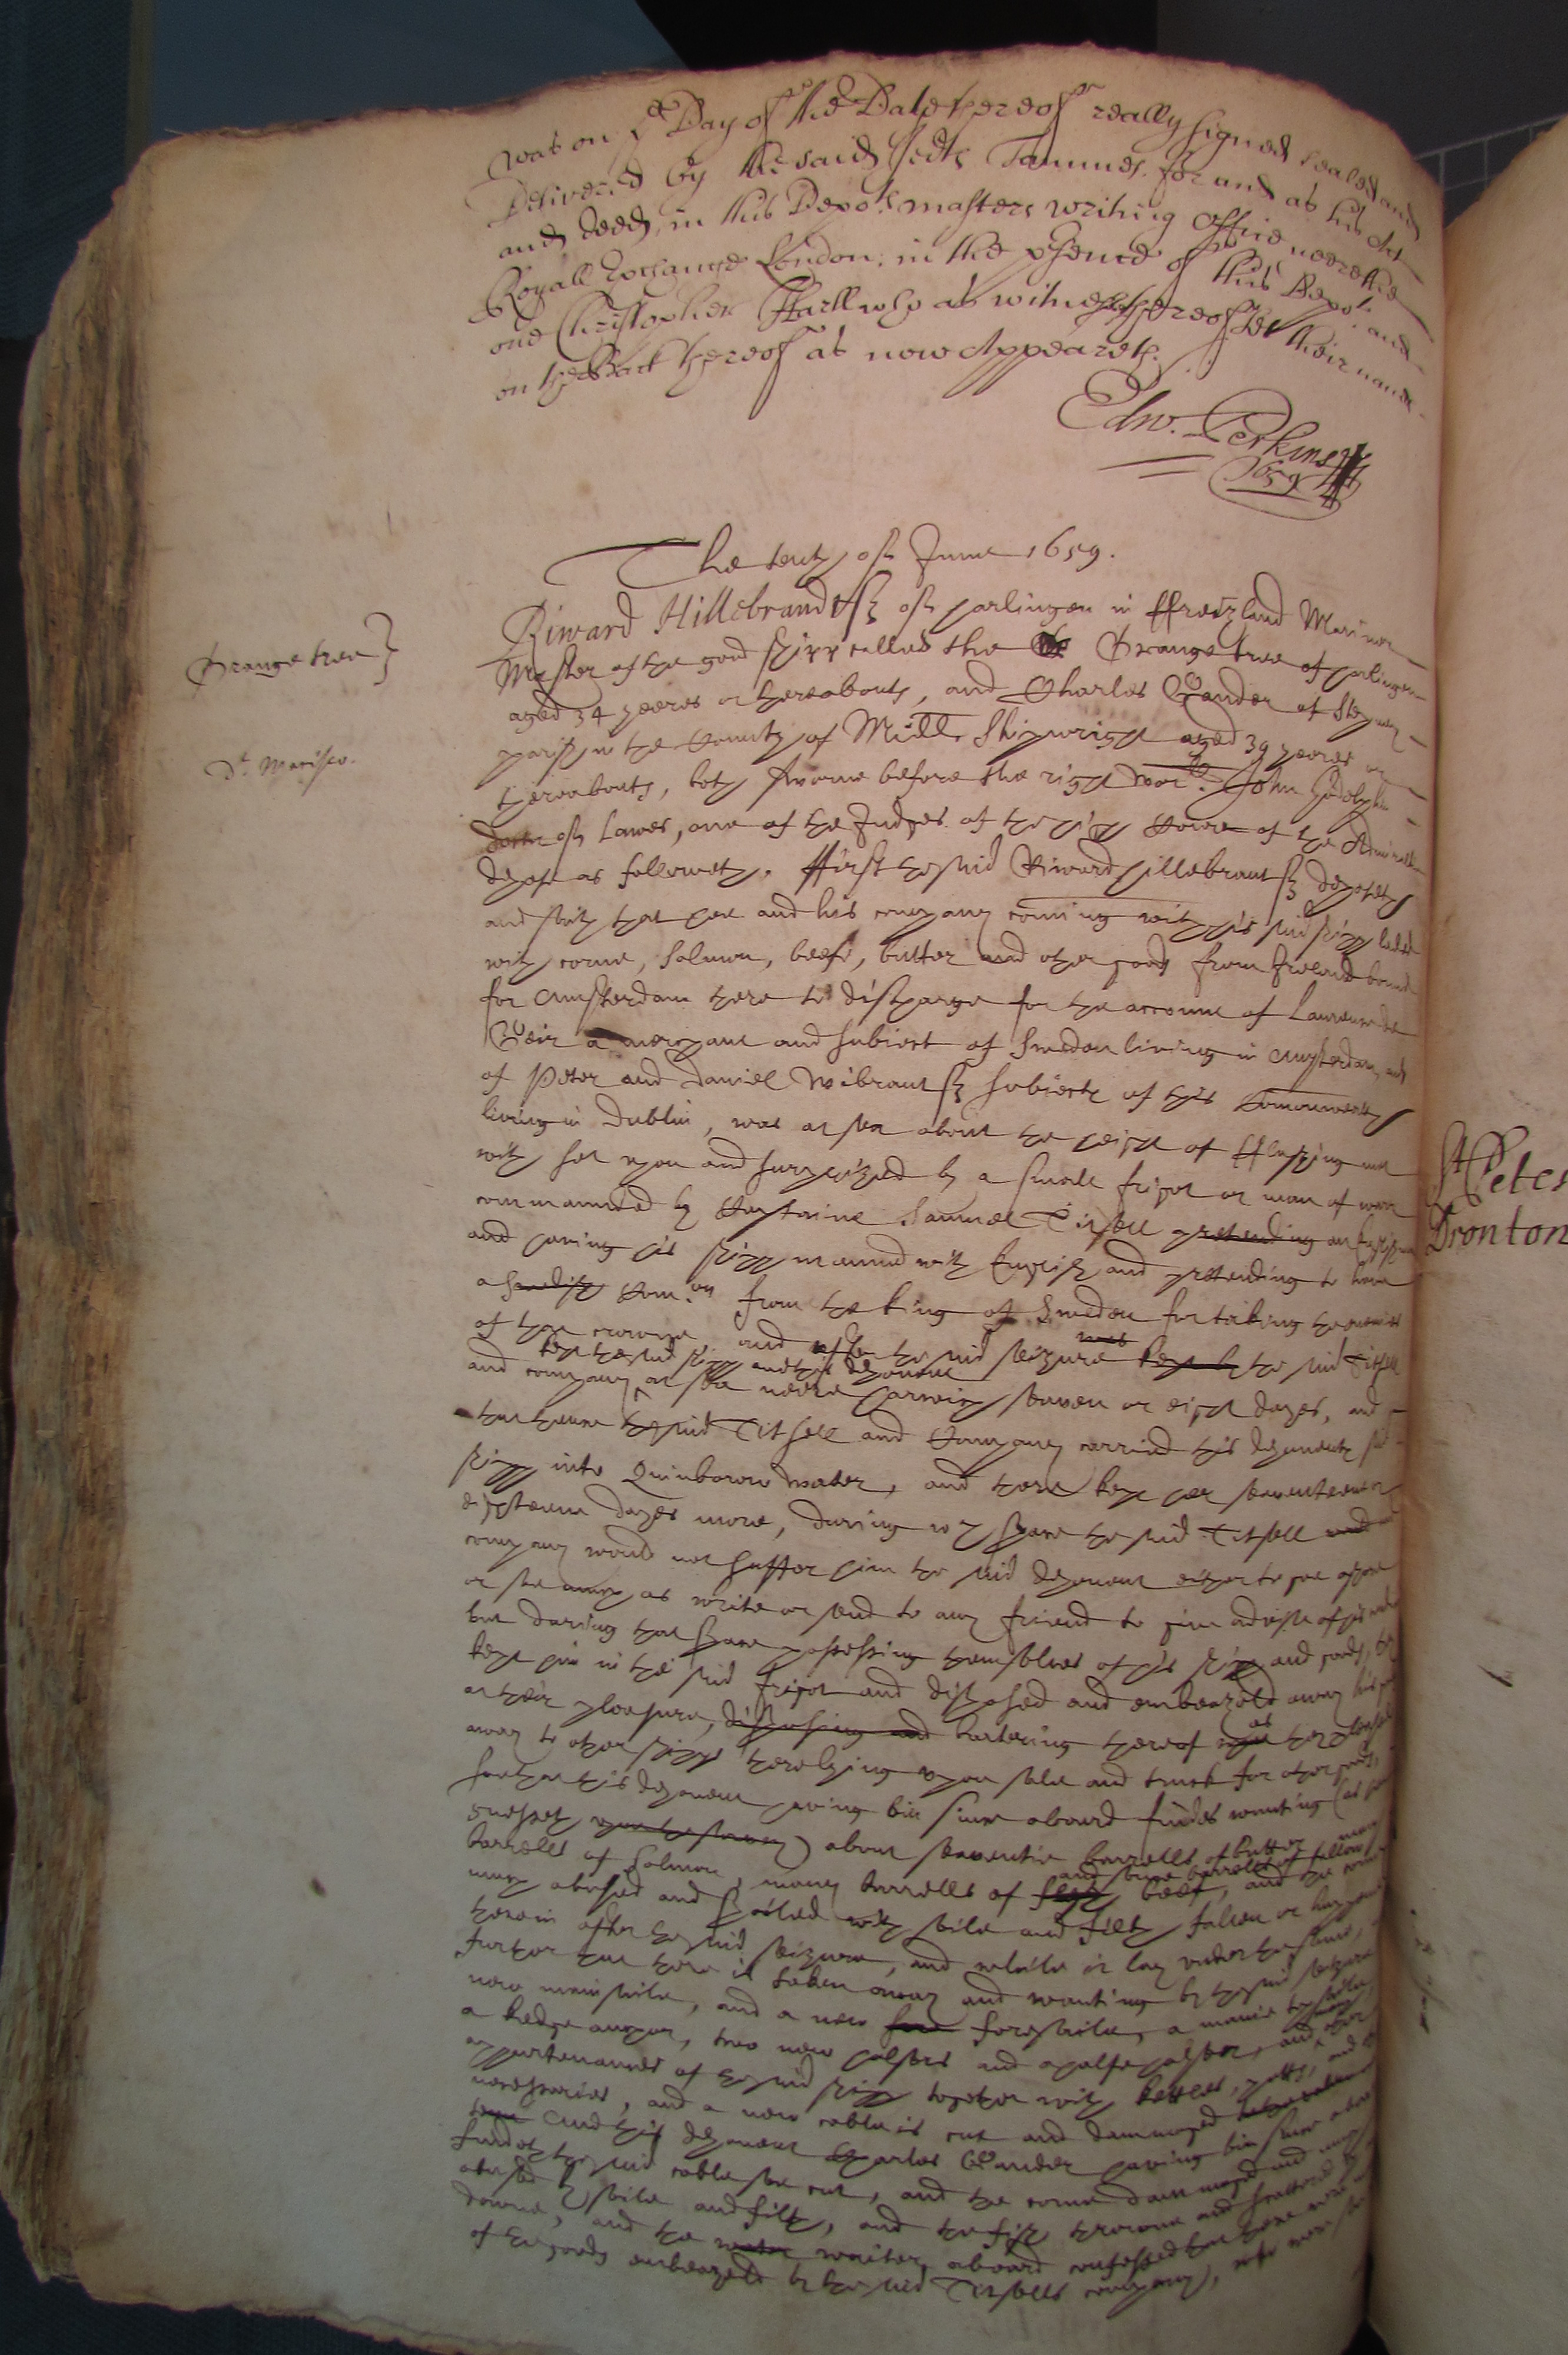 was on ye Day of the Date thereof really signed sealed and
Delivered by the said Tammes for and as his Act
and deed, in this Depots masters writing office neere the
Royall Exchange London, in the psence of this Depot and
one Christopher Harll who as witnesses thereof set their names
on the Back thereof as now Appeareth.
Edw. Perkins
1659
The tenth of June 1659.
Orange tree}
Riward Hillebrandtsz of harlingen in ffreizland Mariner
Master of the good shipp called the Orange tree of harlingen
aged 34 yeeres or thereabouts, and Charles Gander of Stepney
Dr. Marisco.
parish in the County of Middx Shipwright aged 39 yeeres or
thereabouts, both sworne before the right worll. John Godolphin
doctor of Lawes, one of the Judges of the high Court of the Admiraltie
depose as followeth. ffirst the said Riward hillebrantsz deposeth
and saith that hee and his company coming with his said shipp laden
with corne, salmon, beefe, butter and other goods from Ireland bound
for Amsterdam there to discharge for the account of Laurence de
Geir a merchant and subiect of Sweden living in Amsterdam, and
of Peter and Daniel Wibrantsz subiects of this Comonwealth
living in Dublin, was at sea about the height of fflushing met
with set upon and surprized by a small frigot or man of warr
commanded by Captaine Samuel Titsell pretending an
and having his shipp manned with English and pretending to have
a Swedish Comon from the king of Sweden for taking the enemies
of that crowne, and after the said seizure was kept by the said Titsell
kept the said shipp and this deponent
and company at sea neere harwich seaven or eight dayes, and
that thence the said Titsell and Company carried this deponents said
shipp into Quinborow water, and there kept her seaventeene or
eighteene dayes more, during wch space the said Titsell and
company would not suffer him the said deponent either to goe ashore
or soe much as write or send to any friend to give advise of his
but during that space possessing themselves of his shipp and goods, they
kept him in the said frigot and disposed and embeazeld away his goods
at their pleasure, disposing and bartering thereof as they pleased
away to other shipps there lying upon sale and truck for other goods,
soe that this deponent having bin since aboard findes wanting (as hee
guesseth upon the survey) about seaventie barrells of butter many
barrells of Salmon, many barrells of flesh beefe, and the corne
and some barrells of tallow
much abused and spoiled with soile and filth fallen or happened
therein after the said seizure, and while it lay under the same,
further that there is taken away and wanting by the said seizure
new mainsaile, and a new fore foresaile, a maine topsaile,
a kedge anchor, two new halsers and a halfe halser, and other
appurtenances of the said shipp together with kettles, potts, and
necessaries, and a new cable is cut and dammaged
And this deponent Charles Gander having bin since aboard
findeth the said cable soe cut, and the corne dammaged and much
abused by soile and filth, and the fish throwne and scattered
downe, and the water waiter aboard confessed that there were
of the goods embeazeld by the said Titsells company, who were
St Peter
Dronton